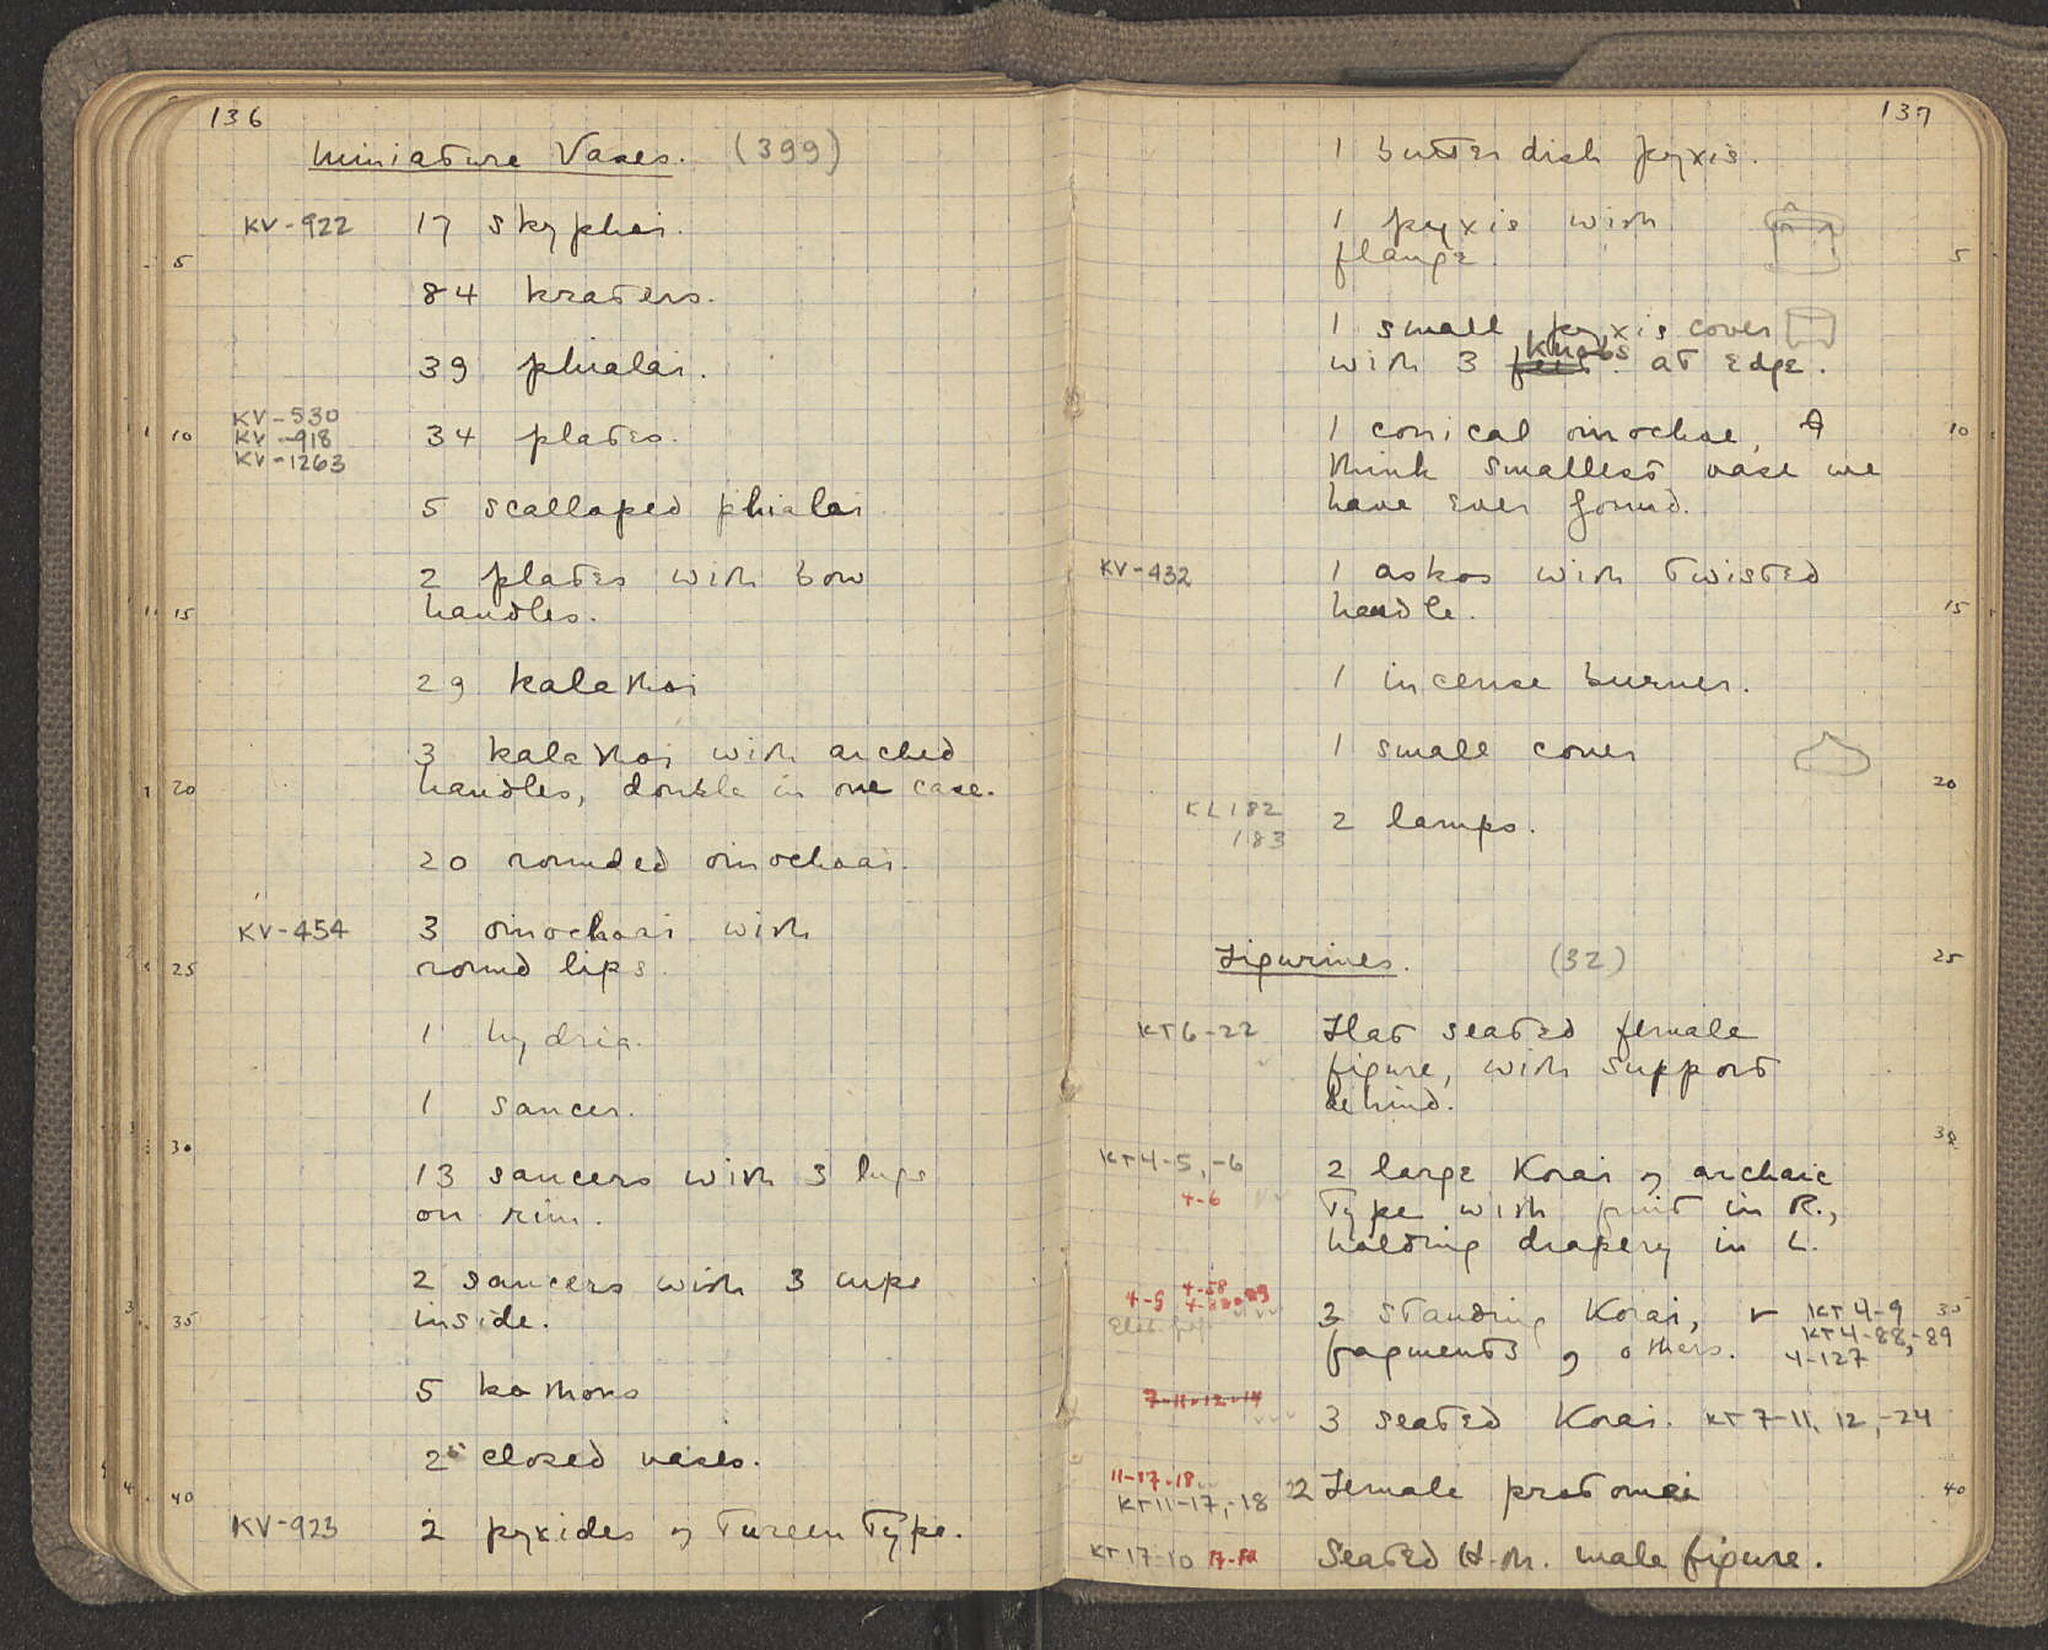 136
Miniature Vases. (399)
KV-922 17 skyphoi.
5
84 kraters.
39 phialai.
KV-530
KV-918
10 34 plates.
KV-1263
5 scalloped phialai
2 plates with bow
15 handles.
29 kalathoi
3 kalathoi with arched
20 handles, double in one case.
20 rounded oinochoai.
KV-454 3 oinochoai with
25 round lips.
1 hydria.
1 saucer.
30
13 saucers with 3 lugs
on rim.
2 saucers with 3 cups
35 inside.
5 kothons
2 closed vases.
40
KV-923 2 pyxides of Tureen Type.
137
1 butter dish pyxis.
1 pyxis with
flange. 5
1 small pyxis cover
knobs
with 3 feet. at edge.
1 conical oinochoe, I 10
think smallest vase we
have ever found.
KV-432 1 askos with twisted
handle. 15
1 incense burner.
1 small cover
20
KL182
183 2 lamps.
Figurines. (32) 25
KT6-22 Flat seated female
figure, with support
behind.
30
KT4-5,-6 2 large Korai of archaic
4-6 Type with fruit in R.,
holding drapery in L.
4-9 4-58
3 standing Korai, KT4-9 35
KT4-88,-89
fragments of others. 4-127
7-11-12-14
3 seated Korai. KT7-11, 12,-24
11-17-18
KT11-17,-18 2 Female protomai 40
KT17-10 Seated H-M. male figure.